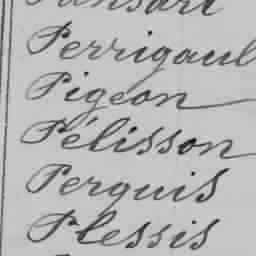 Perrigaul
Pigeon
Pélisson
Perguis
Plessis